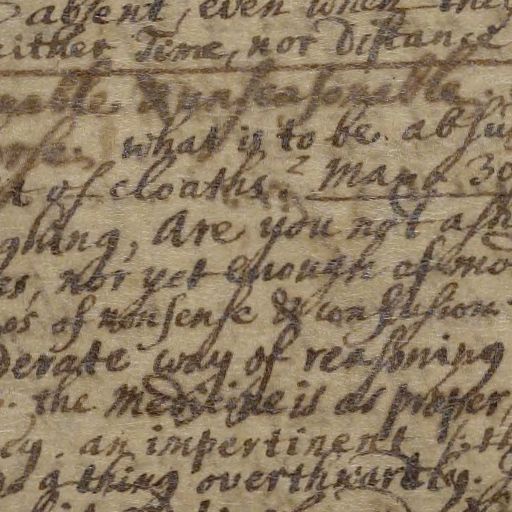 absent, even when the
either Time, nor Distance
unseasonable
what is to be absu
of cloaths? Many 30
ghing, Are you not ash
nor yet enough of mo
of nonsense & confusion
derate way of reasoning
the Medicine is as proper,
an impertinent
thing overthwartly.